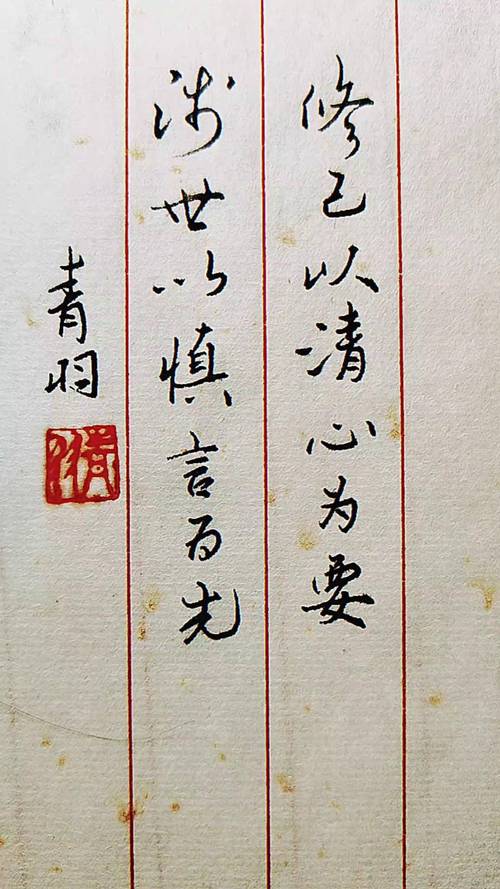 修己以清心为要
涉世以慎言为先
青羽